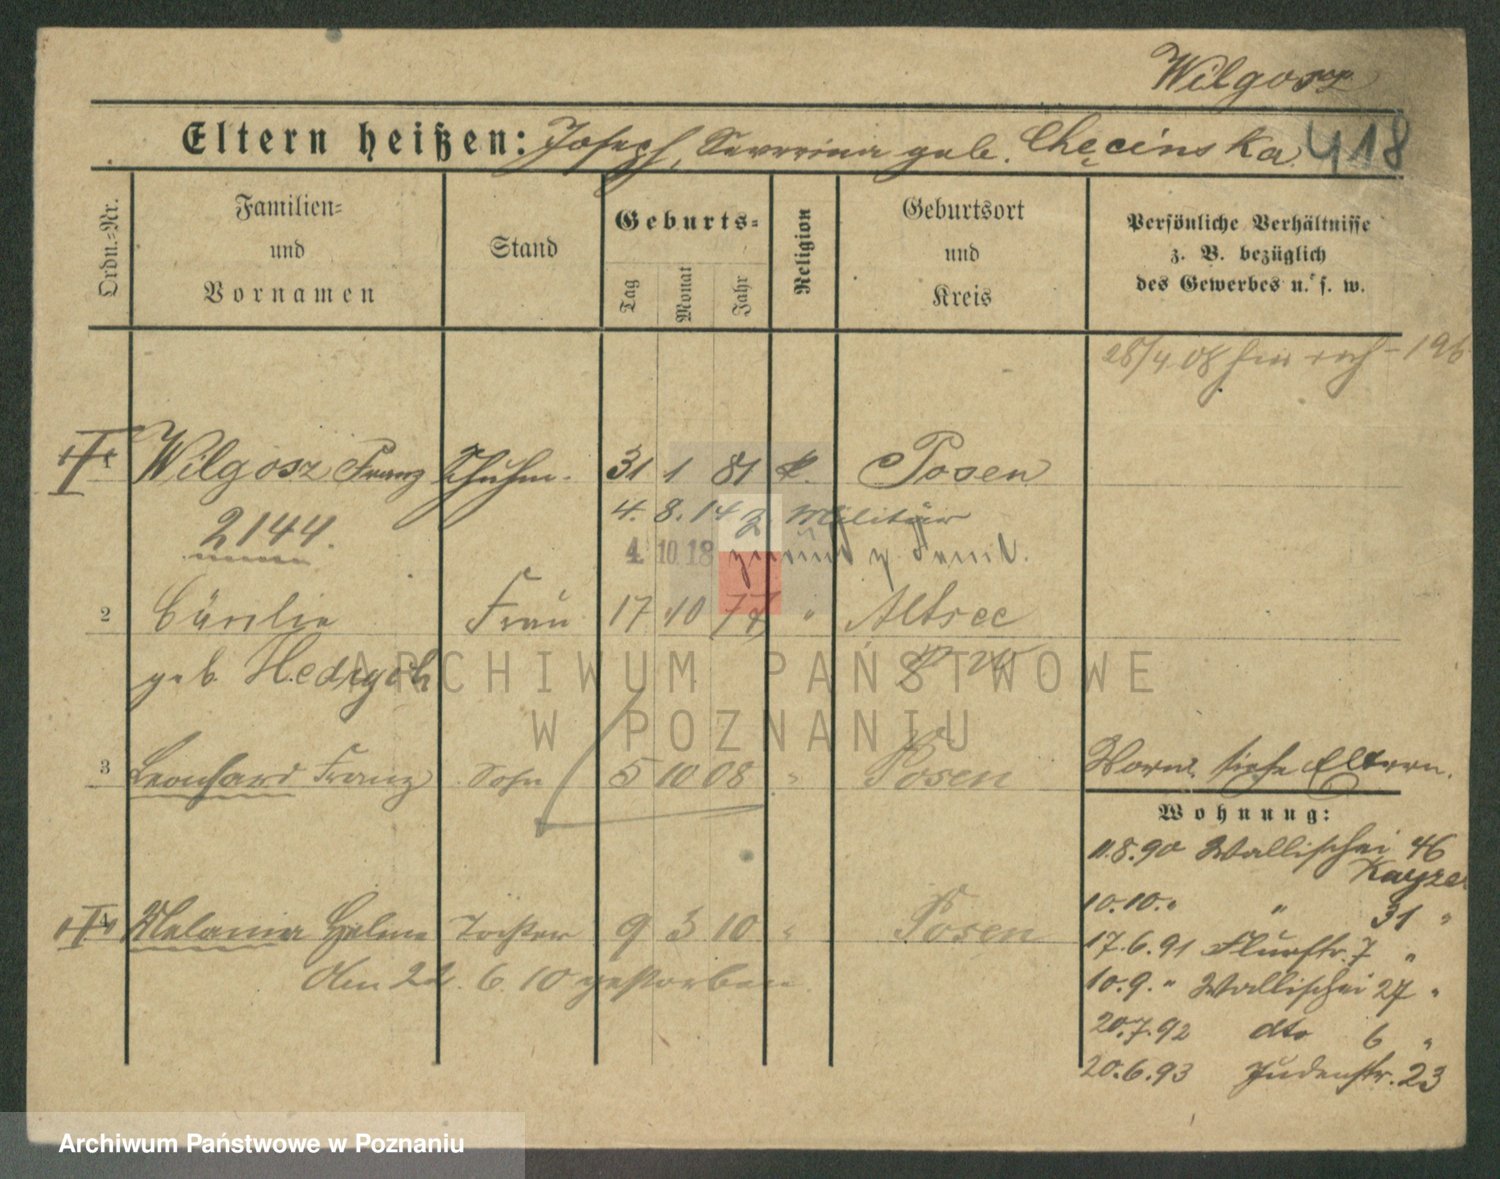 Wilgosz
Eltern heißen: Joseph, Severina geb. Chęcinska 418
Ordn.-Nr.
Familien-
und
Vornamen
Stand
Geburts-
Tag
Monat
Jahr
Religion
Geburtsort
und
Kreis
Persönliche Verhältnisse
z. B. bezüglich
des Gewerbes u. s. w.
28/4 08 196
1 Wilgosz Franz Schuhm. 31 1 81 k. Posen
2144. 4. 8. 14 z. Militär
4. 10. 18 zurück v.
2 Cäcilie Frau 17 10 77 " Altsee
geb.
ARCHIWUM PAŃSTWOWE
W POZNANIU
3 Leonhard Franz Sohn 5 10 08 " Posen
Vorw. siehe Eltern.
Wohnung:
11.8.90 Wallischei 46
Kayzer
10.10. " " 31 "
4 Melania Helene Tochter 9 3 10 " Posen
17.6.91 Flurstr. 7 "
Am 22. 6. 10 gestorben.
10.9. " Wallischei 27 "
20.7.92 dto 6 "
20.6.93 Judenstr. 23
Archiwum Państwowe w Poznaniu